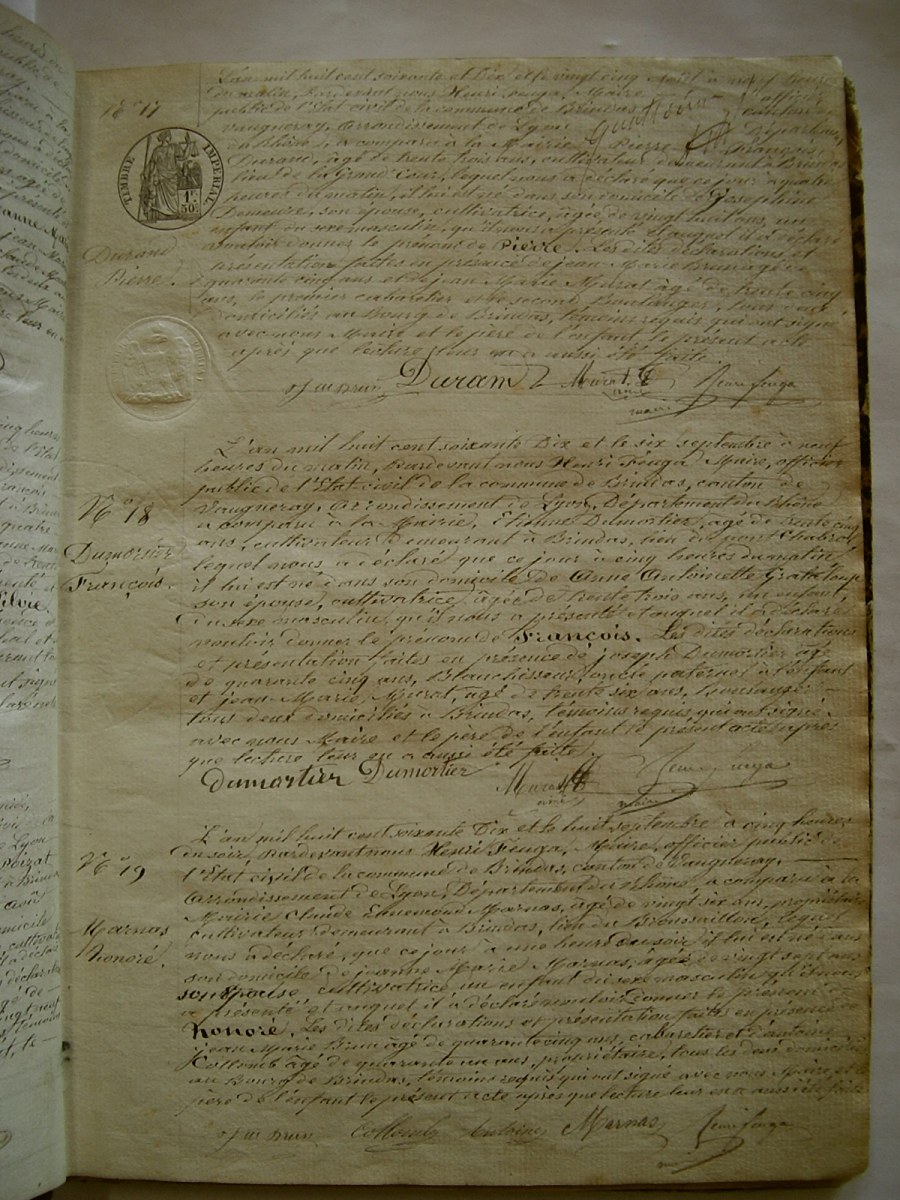 L'an mil huit cent soixante et Dix et le vingt cinq Août à neuf heures
du matin, Par devant nous Henri Feuga, Maire, officier
public de l'Etat civil de la commune de Brindas, canton de
Vaugneray, arrondissement de Lyon Département
du Rhône, a comparu à la Mairie Pierre François
Durand, âgé de trente trois ans, cultivateur demeurant à Brindas
lieu de la Grand Cour, lequel nous a déclaré que ce jour à quatre
heures du matin, il lui est né dans son domicile de Josephine
Demeure, son épouse, cultivatrice, âgée de vingt huit ans, un
enfant du sexe masculin, qu'il nous a présenté et auquel il a déclaré
vouloir donner le prénom de Pierre. Les dites déclarations et
présentation faites en présence de Jean Marie Brun âgé de
quarante cinq ans et de Jean Marie Murat âgé de trente cinq
ans, le premier cabaretier et le second Boulanger, tous deux
domiciliés au Bourg de Brindas, témoins requis qui ont signé
avec nous Maire et le père de l'enfant le présent acte
après que lecture leur en a aussi été faite
No 17
TIMBRE IMPERIAL
1 F.
50 C.
Durand
Pierre.
j m brun Durand Murat Henri Feuga
maire
L'an mil huit cent soixante Dix et le six septembre à neuf
heures du matin, Pardevant nous Henri Feuga Maire, officier
public de l'Etat civil de la commune de Brindas, canton de
Vaugneray, arrondissement de Lyon, Département du Rhône
a comparu à la Mairie, Etienne Dumortier, âgé de trente cinq
ans, cultivateur demeurant à Brindas, lieu du pont Chabrol
lequel nous a déclaré que ce jour à cinq heures du matin
il lui est né dans son domicile de Anne Antoinette Grataloup
son épouse, cultivatrice, âgée de trente trois ans, un enfant,
du sexe masculin, qu'il nous a présenté et auquel il a déclaré
vouloir donner le prénom de François. Les dites déclarations
et présentation faites en présence de Joseph Dumortier âgé
de quarante cinq ans, Blanchisseur, oncle paternel à l'enfant
et Jean Marie Murat, âgé de trente six ans, Boulanger
tous deux domiciliés à Brindas, témoins requis qui ont signé
avec nous Maire et le père de l'enfant le présent acte après
que lecture leur en a aussi été faite.
No 18
Dumortier
François.
Dumortier Dumortier Murat Henri Feuga
maire
L'an mil huit cent soixante Dix et le huit septembre à cinq heures
du soir, Pardevant nous Henri Feuga, Maire, officier public de
l'Etat civil de la commune de Brindas, canton de Vaugneray,
arrondissement de Lyon, Département du Rhône a comparu à la
Mairie Claude Ennemond Marnas, âgé de vingt six ans, propriétaire
cultivateur demeurant à Brindas, lieu du Broussaillon, lequel
nous a déclaré, que ce jour à une heure du soir il lui est né dans
son domicile de Jeanne Marie Marnas, âgée de vingt sept ans
son épouse cultivatrice un enfant du sexe masculin qu'il nous
a présenté et auquel il a déclaré vouloir donner le prénom de
honoré. Les dites déclarations et présentation faites en présence de
Jean Marie Brun âgé de quarante cinq ans, cabaretier et d'antoine
Collomb âgé de quarante un ans, propriétaire, tous les deux domiciliés
au Bourg de Brindas, témoins requis qui ont signé avec nous Maire et le
père de l'enfant le présent acte après que lecture leur en a aussi été faite
No 19
Marnas
honoré.
j m brun Collomb antoine Marnas Henri Feuga
maire